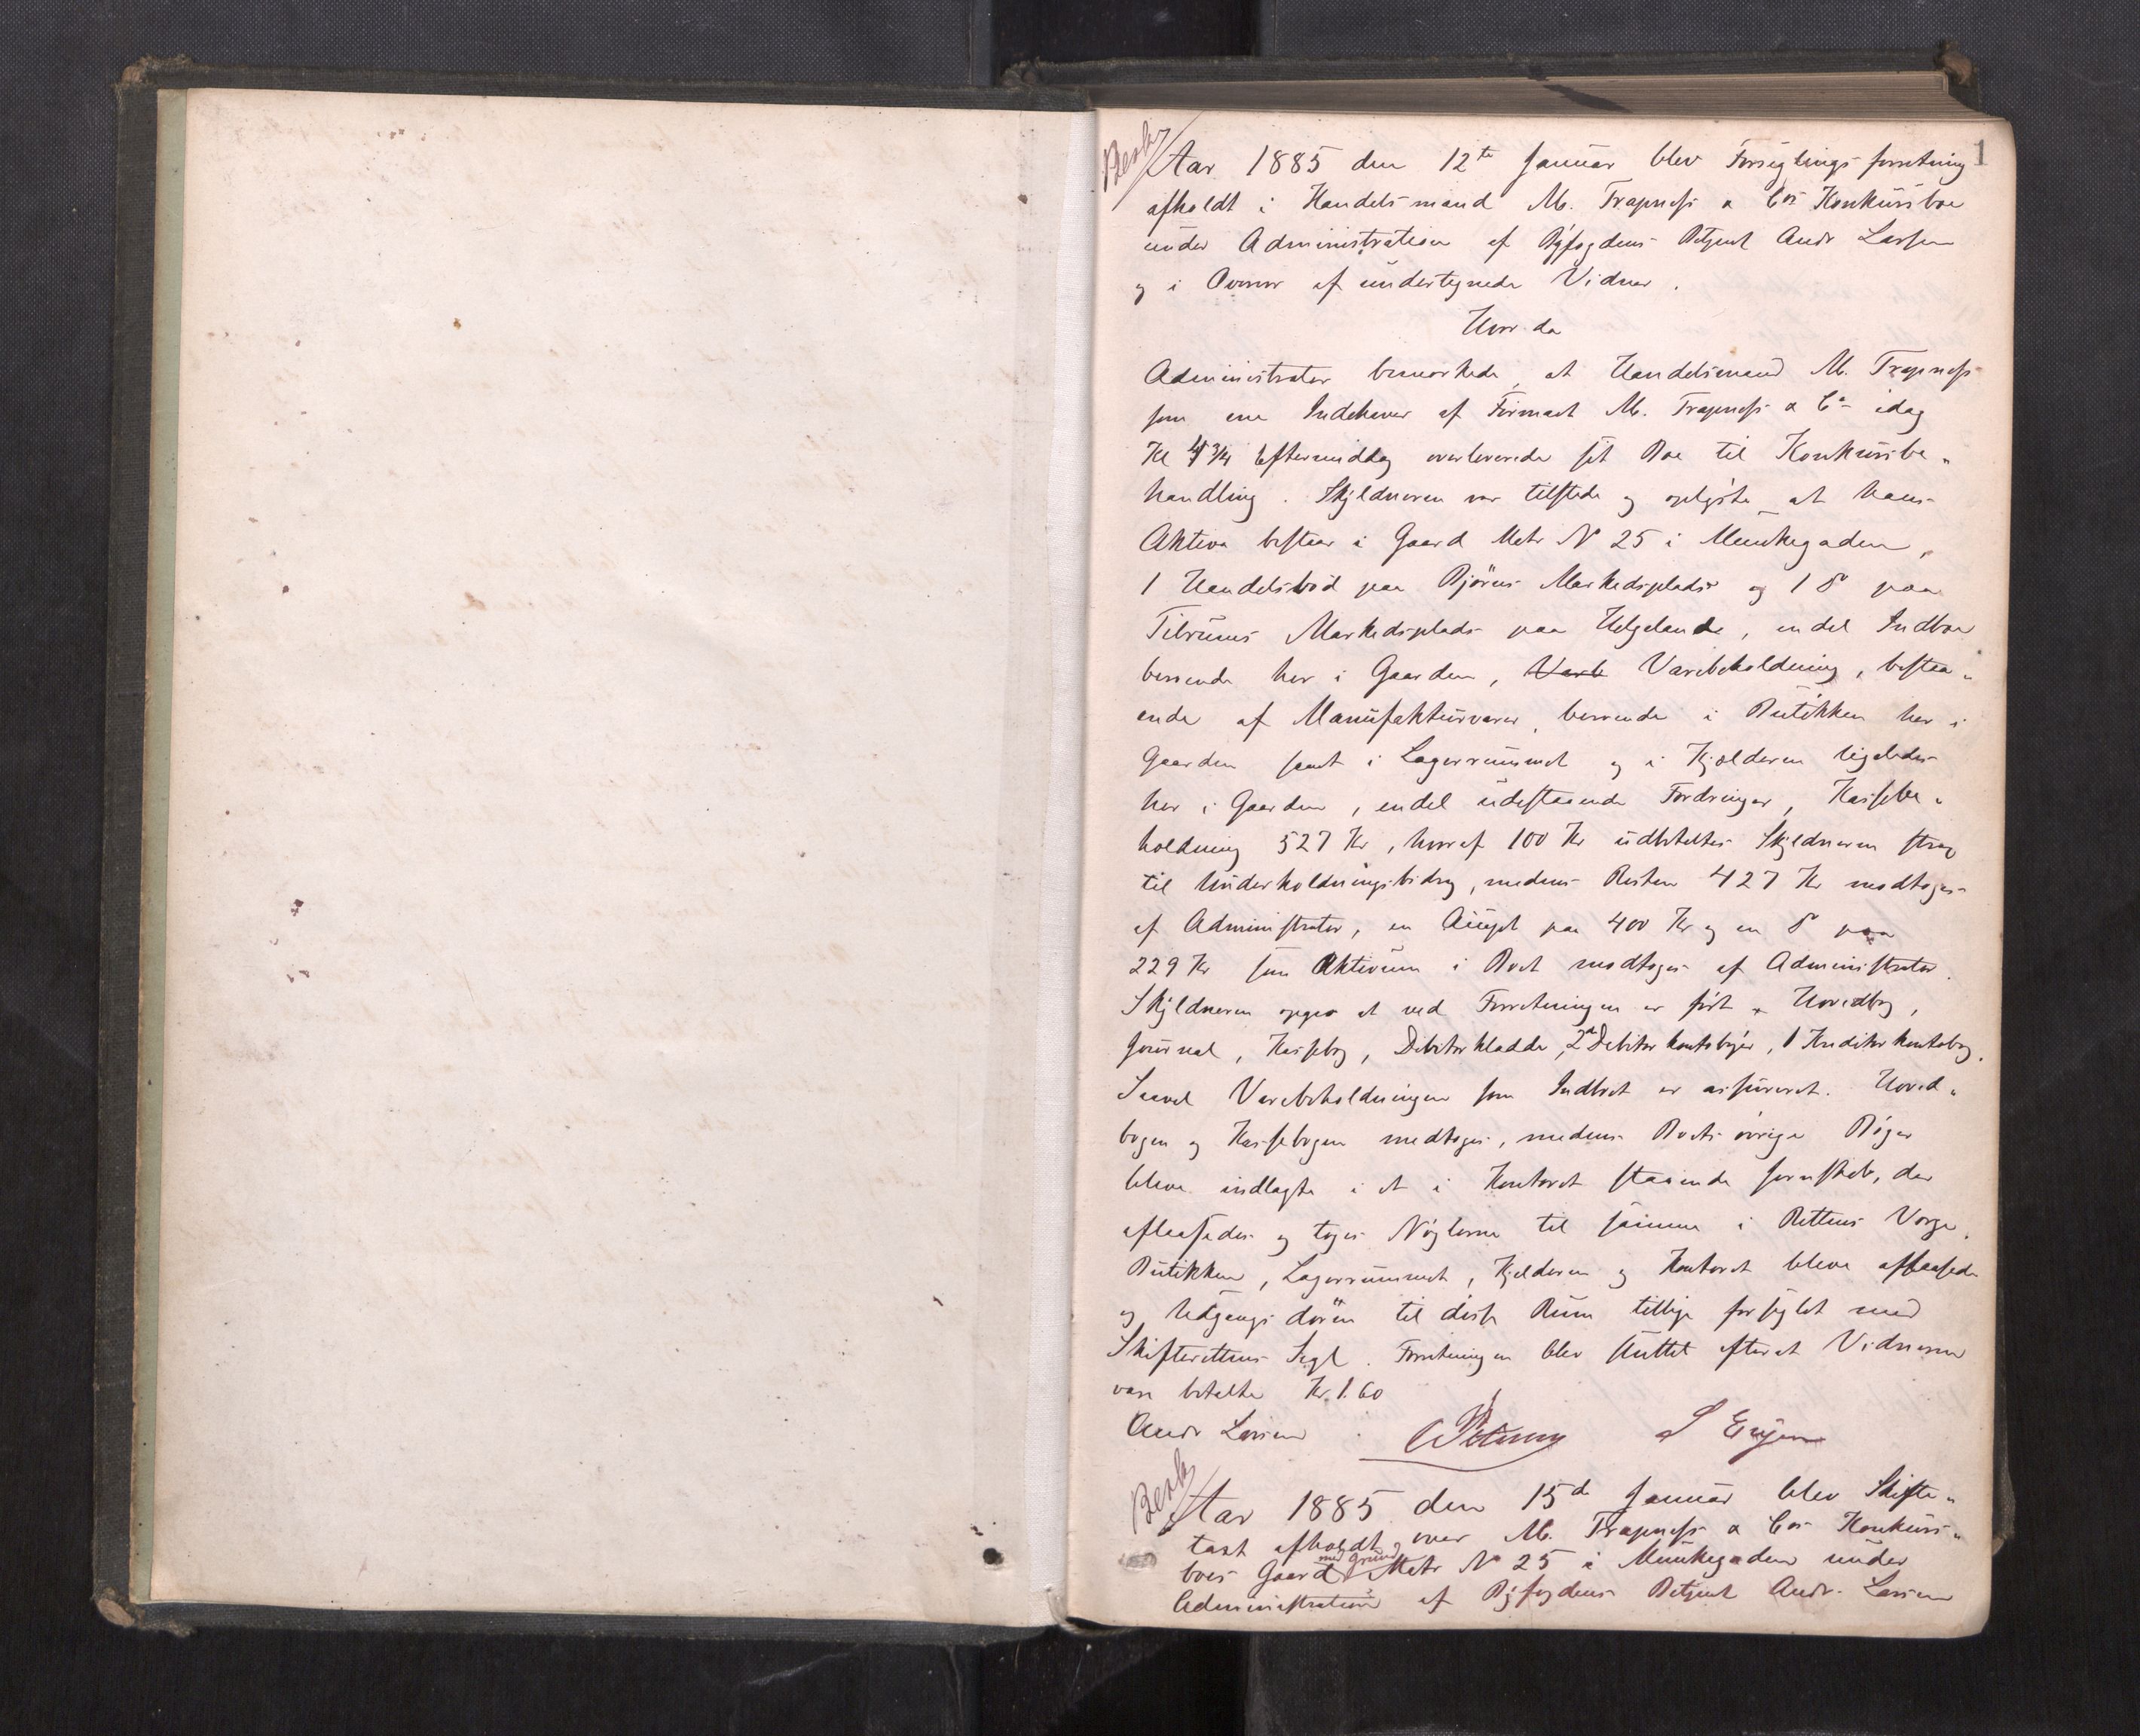 1
Besk
Aar 1885 den 12te Januar blev Forseglingsforretning
afholdt i Handelsmand M. Trapness & Cos Konkursboe
under Administration af Byfogdens Betjent Andr Larsen
og i Overvær af undertegnede Vidner.
Hvor da
Administrator bemærkede, at Handelsmand M. Trapness
som ene Indehaver af Firmaet M. Trapness & Co idag
Kl 4 3/4 Eftermiddag overleverede sit Boe til Konkursbe„
handling. Skyldneren var tilstede og oplyste at hans
Aktiva bestaar i Gaard Matr No 25 i Munkegaden,
1 Handelsbod paa Bjørns Markedsplads og 1 do paa
Tilrums Markedsplads paa Helgeland, endel Indboe
beroende her i Gaarden, Vareb Varebeholdning, bestaa„
ende af Manufakturvarer, beroende i Butikken her i
Gaarden samt i Lagerrummet og i Kjælderen ligeledes
her i Gaarden, endel udestaaende Fordringer, Kassebe„
holdning 527 Kr, hvoraf 100 Kr udbetaltes Skyldneren strax
til Underholdningsbidrag, medens Resten 427 Kr modtoges
af Administrator, en paa 400 Kr og en do paa
229 Kr som Aktivum i Boet modtoges af Administrator.
Skyldneren opgav at ved Forretningen er ført Hovedbog,
Journal, Kassebog, Debitorkladde, 2de Debitorkontobøger, 1 Kreditorkontobog.
Saavel Varebeholdningen som Indboet er assureret. Hoved„
bogen og Kassebogen medtoges, medens Boets øvrige Bøger
bleve indlagte i et i Kontoret staaende Jernskab, der
aflaasedes og toges Nøglerne til samme i Rettens Værge.
Butikken, Lagerrummet, Kjelderen og Kontoret bleve aflaasede
og Udgangsdøren til disse Rum tillige forseglet med
Skifterettens Segl. Forretningen blev sluttet efterat Vidnerne
vare betalte Kr. 1.60
Andr Larsen
Besk
Aar 1885 den 15d Januar blev Skifte„
taxt afholdt over M. Trapness & Cos Konkurs„
boes Gaard med Grund Matr No 25 i Munkegaden under
Administration af Byfogdens Betjent Andr. Larsen